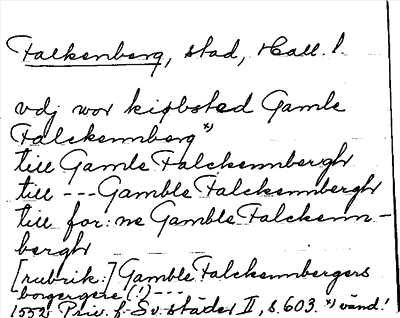 Falkenberg, stad, Hall. l.
vdj wor kiøbsted Gamle
Falckennberg *)
till Gamle Falckennbergh
till --- Gamble Falckennbergh
till for:ne Gamble Falckenn-
bergh
[rubrik:] Gamble Falckennbergers
borgergere (!) ---
1552 Priv. f. Sv. städer II, s. 603. *) vänd!